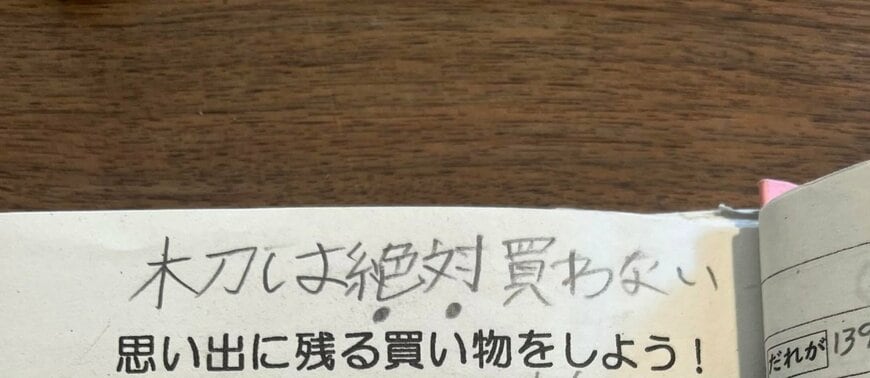 木刀は絶対買わない
思い出に残る買い物をしよう!
だれが 139